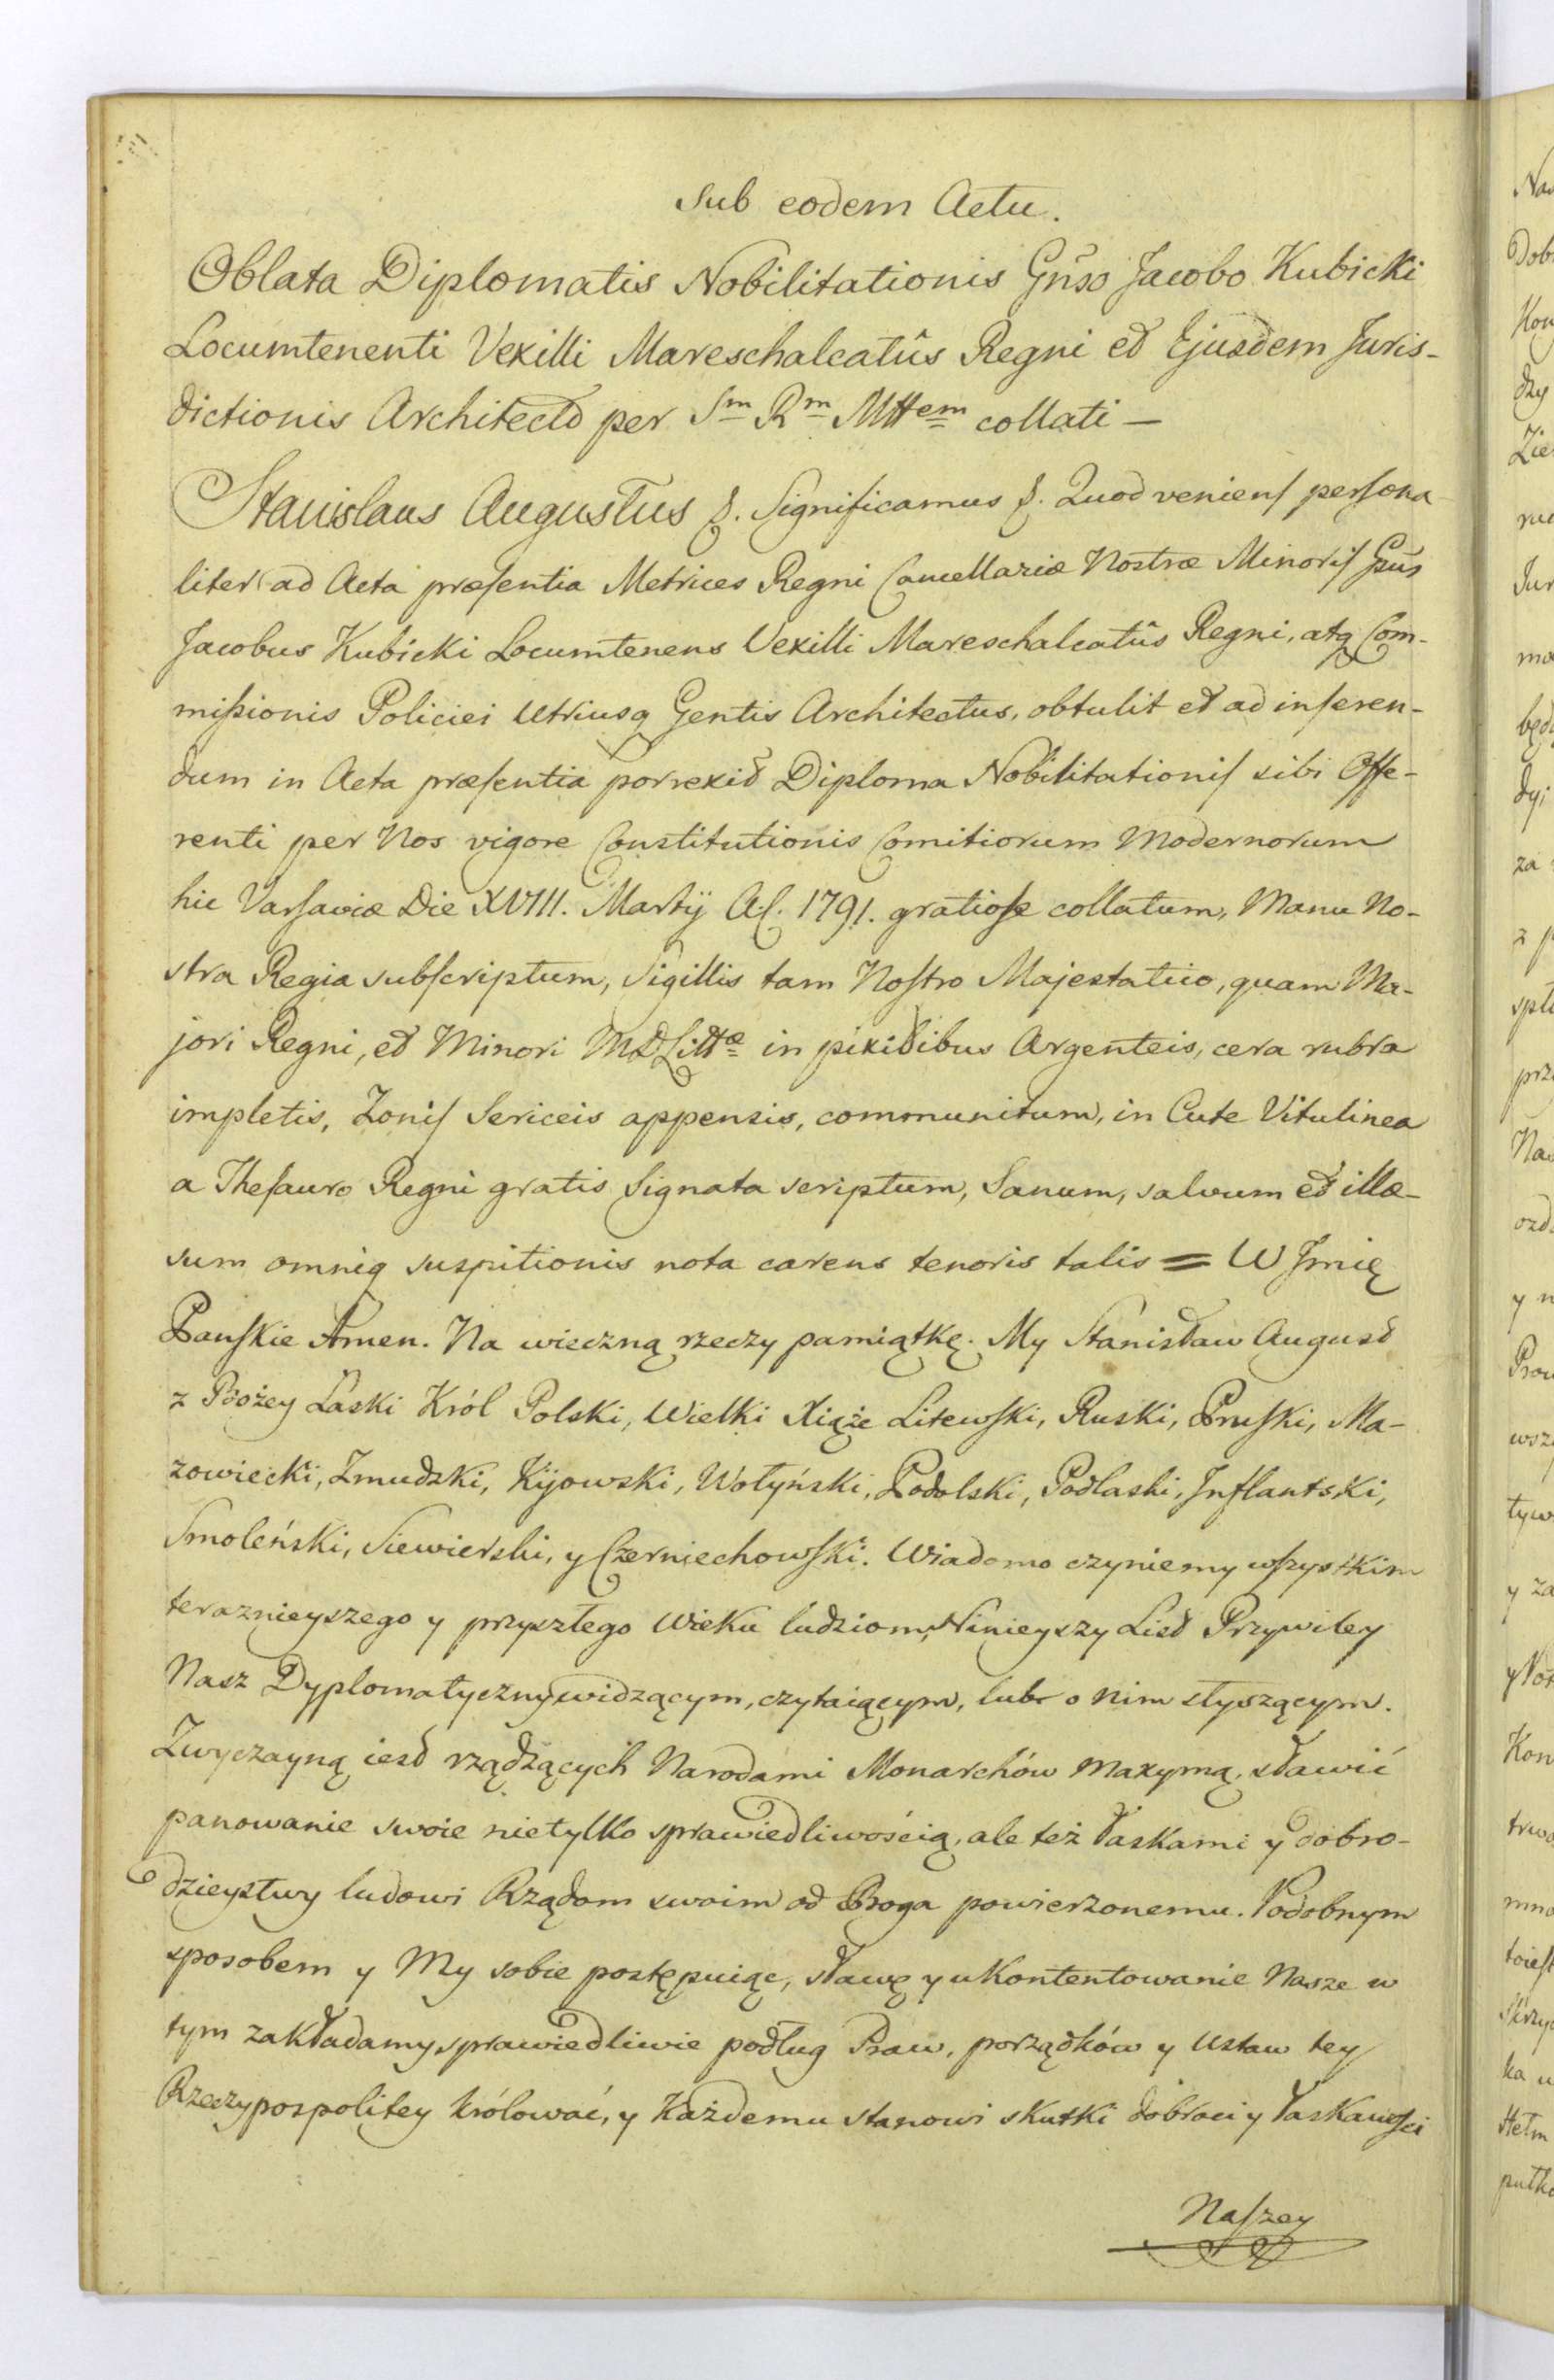 Sub eodem Actu.
Oblata Diplomatis Nobilitationis Gñso Jacobo Kubicki
Locumtenenti Vexilli Mareschalcatûs Regni et Ejusdem Juris-
dictionis Architecto per Sm Rm Mttem collati —
Stanislaus Augustus &. Significamus &. Quod veniens persona
liter ad Acta præsentia Metrices Regni Cancellariæ Nostræ Minoris Gsus
Jacobus Kubicki Locumtenens Vexilli Mareschalcatûs Regni, atq Com-
missionis Policiei Utriusq Gentis Architectus, obtulit et ad inseren-
dum in Acta præsentia porrexit Diploma Nobilitationis sibi Offe-
renti per Nos vigore Constitutionis Comitiorum Modernorum
hic Varsaviæ Die XVIII. Martij A.C. 1791. gratiose collatum, Manu No-
stra Regia subscriptum, Sigillis tam Nostro Majestatico, quam Ma-
jori Regni, et Minori MDLittæ in pixidibus Argenteis, cera rubra
impletis, Zonis Sericeis appensis, communitum, in Cute Vitulinea
a Thesauro Regni gratis Signata scriptum, Sanum, salvum et illæ-
sum omniq suspitionis nota carens tenoris talis = W Jmię
Pańskie Amen. Na wieczną rzeczy pamiątkę. My Stanisław August
z Bożey Łaski Król Polski, Wielki Xiąże Litewski, Ruski, Pruski, Ma-
zowiecki, Zmudzki, Kijowski, Wołyński, Podolski, Podlaski, Jnflantski,
Smoleński, Siewierski, y Czerniechowski. Wiadomo czyniemy wszystkim
teraznieyszego y przyszłego Wieku ludziom, Ninieyszy List Przywiley
Nasz Dyplomatyczny widzącym, czytaiącym, lub o nim słyszącym.
Zwyczayną iest rządzących Narodami Monarchów Maxymą, sławić
panowanie swoie nietylko sprawiedliwością, ale też łaskami y dobro-
dzieystwy ludowi Rządom swoim od Boga powierzonemu. Podobnym
sposobem y My sobie postępuiąc, sławę y ukontentowanie Nasze w
tym zakładamy, sprawiedliwie podług Praw, porządków y Ustaw tey
Rzeczypospolitey królować, y każdemu stanowi skutki dobroci y łaskawości
Naszey